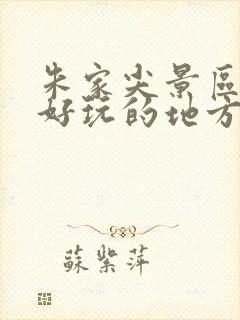 朱家尖景區
好玩的地方
蘇紫萍